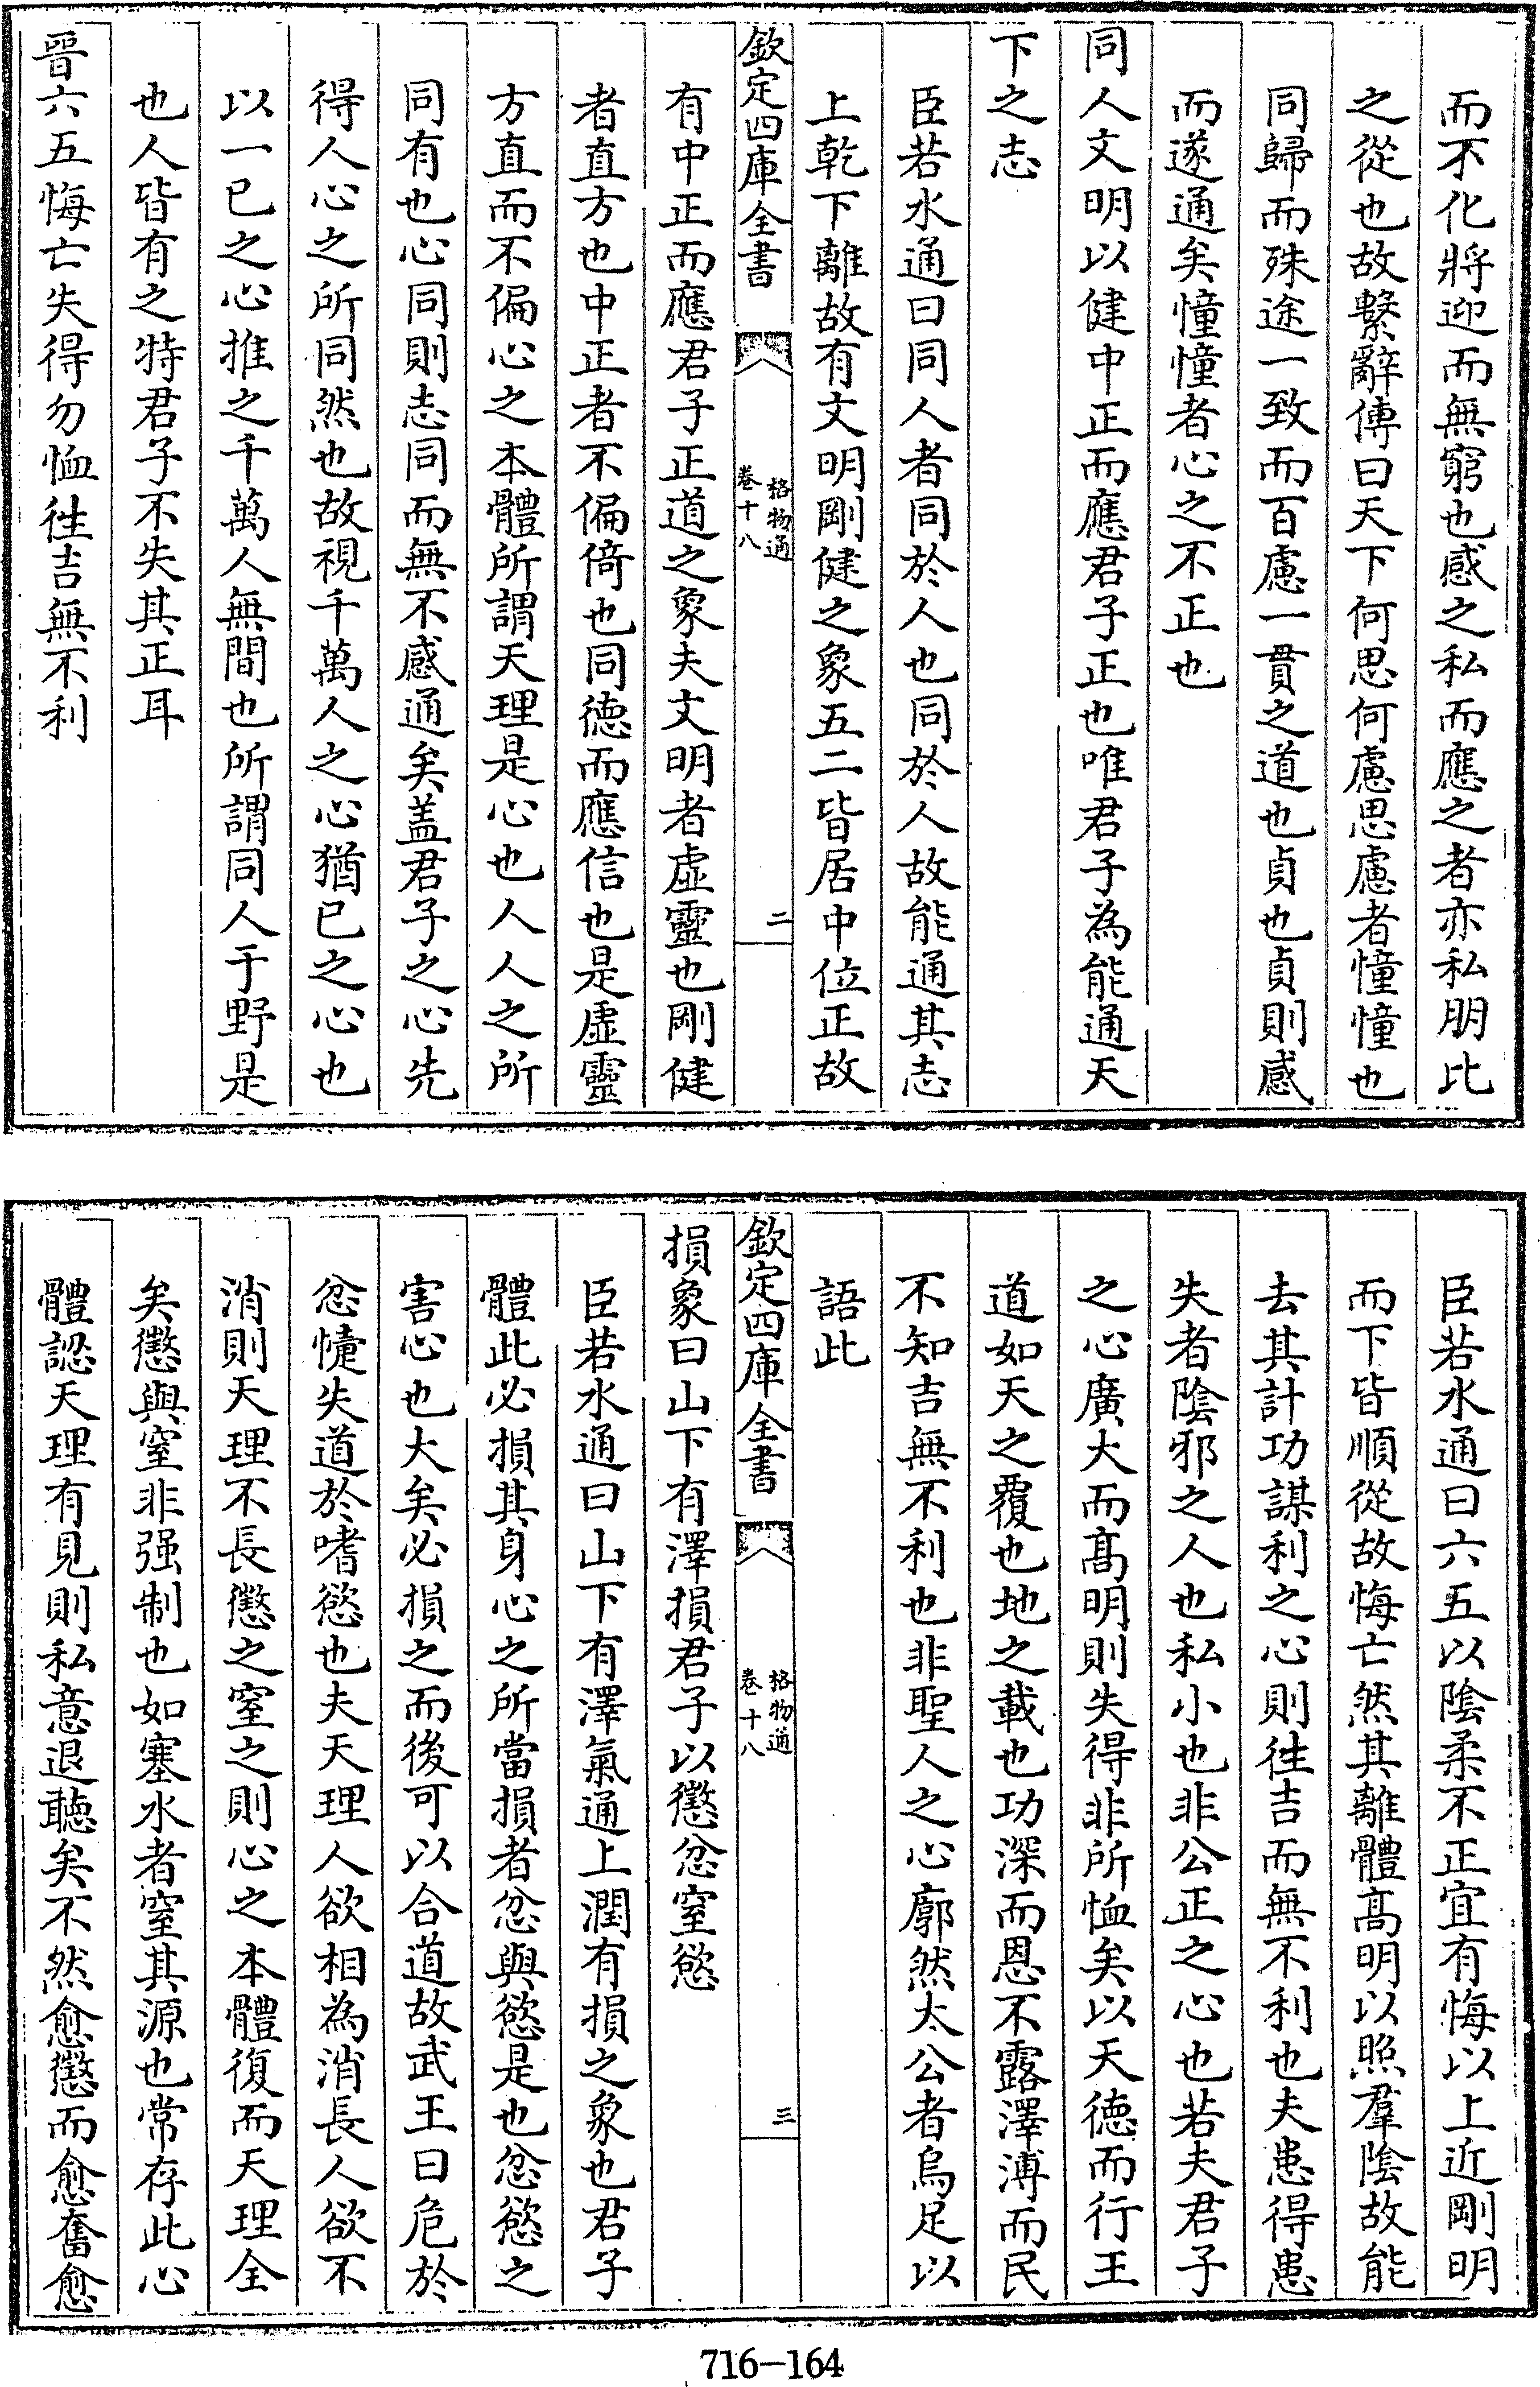 而不化將迎而無窮也感之私而應之者亦私朋比
之從也故繫辭傳曰天下何思何慮思慮者憧憧也
同歸而殊途一致而百慮一貫之道也貞也貞則感
而遂通矣憧憧者心之不正也
同人文明以健中正而應君子正也唯君子為能通天
下之志
臣若水通曰同人者同於人也同於人故能通其志
上乾下離故有文明剛健之象五二皆居中位正故
欽定四庫全書
格物通
卷十八
二
有中正而應君子正道之象夫文明者虛靈也剛健
者直方也中正者不偏倚也同德而應信也是虛靈
方直而不偏心之本體所謂天理是心也人人之所
同有也心同則志同而無不感通矣盖君子之心先
得人心之所同然也故視千萬人之心猶已之心也
以一已之心推之千萬人無間也所謂同人于野是
也人皆有之特君子不失其正耳
晉六五悔亡失得勿恤徃吉無不利
臣若水通曰六五以陰柔不正宜有悔以上近剛明
而下皆順從故悔亡然其離體髙明以照羣陰故能
去其計功謀利之心則徃吉而無不利也夫患得患
失者陰邪之人也私小也非公正之心也若夫君子
之心廣大而髙明則失得非所恤矣以天德而行王
道如天之覆也地之載也功深而恩不露澤溥而民
不知吉無不利也非聖人之心廓然太公者烏足以
語此
欽定四庫全書
格物通
卷十八
三
損象曰山下有澤損君子以懲忿窒慾
臣若水通曰山下有澤氣通上潤有損之象也君子
體此必損其身心之所當損者忿與慾是也忿慾之
害心也大矣必損之而後可以合道故武王曰危於
忿懥失道於嗜慾也夫天理人欲相為消長人欲不
消則天理不長懲之窒之則心之本體復而天理全
矣懲與窒非强制也如塞水者窒其源也常存此心
體認天理有見則私意退聽矣不然愈懲而愈奮愈
716-164